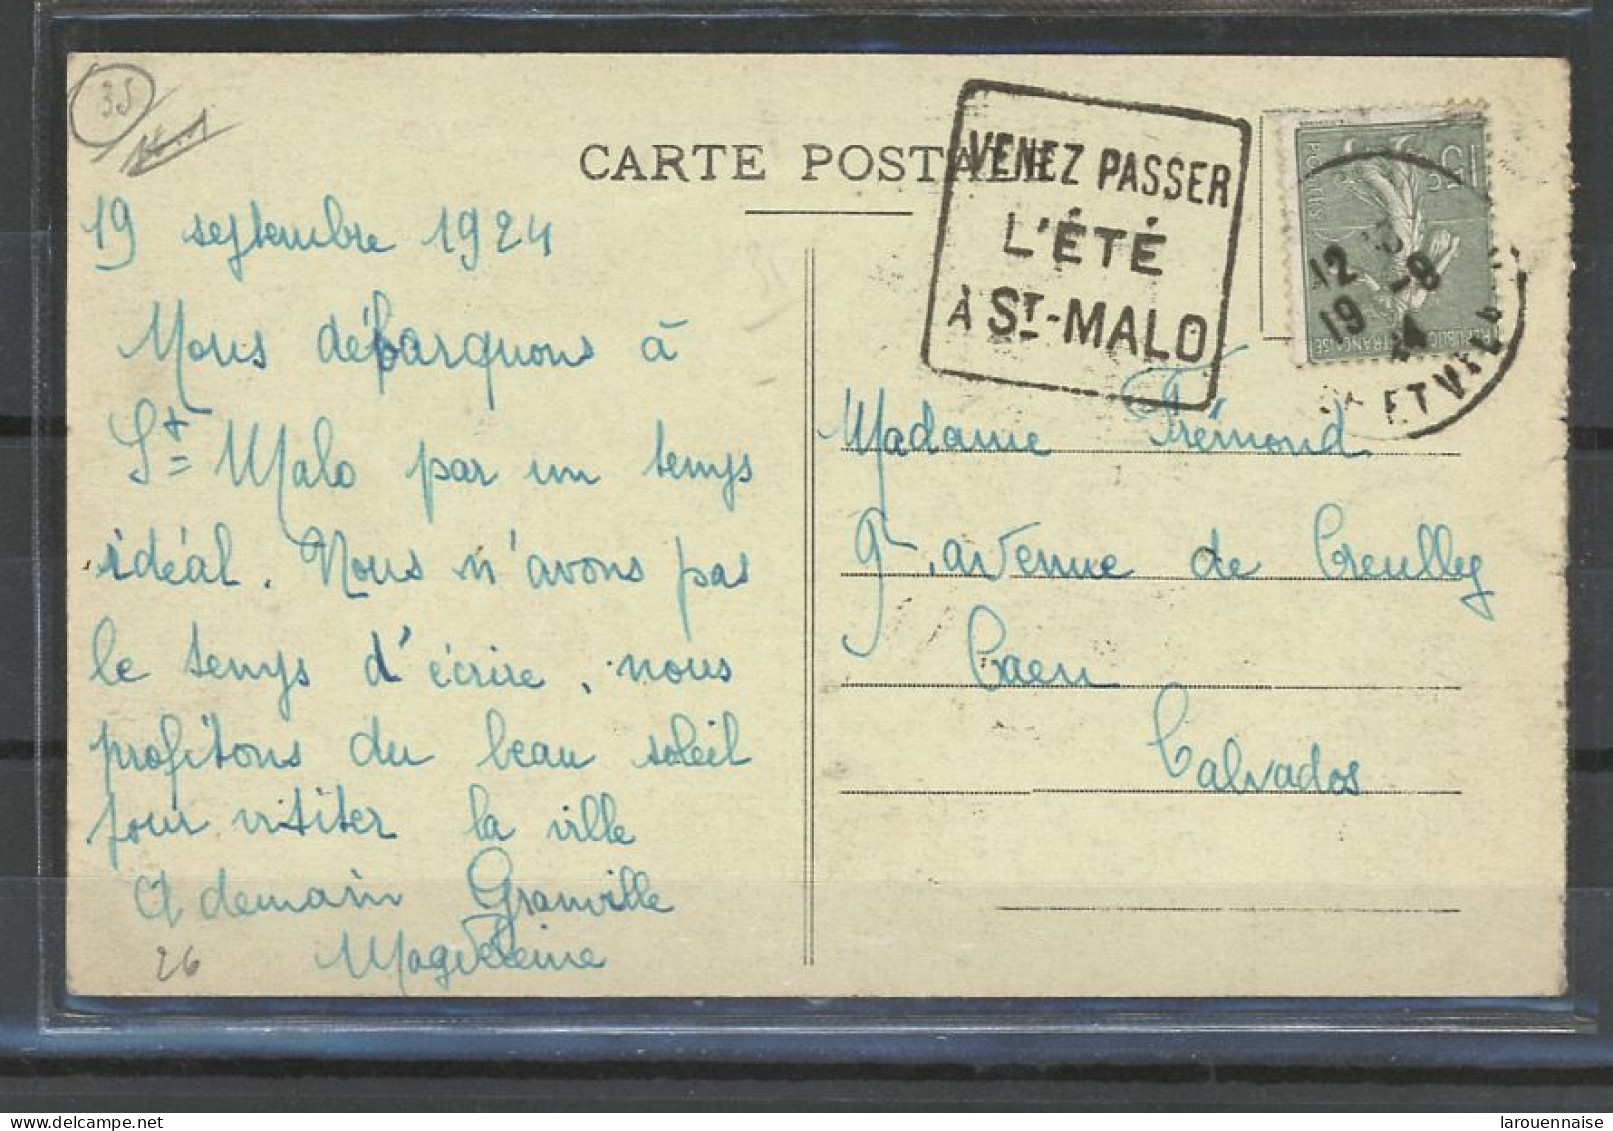 35
CARTE POSTALE
VENEZ PASSER
L'ÉTÉ
À ST-MALO
15c
POSTES
REPUBLIQUE FRANÇAISE
12
19 -8
24
ET VIL
19 septembre 1924
Nous débarquons à
St Malo par un temps
idéal. Nous n'avons pas
le temps d'écrire, nous
profitons du beau soleil
pour visiter la ville
A demain Granville
Magdeleine
26
Madame Frémond
9, avenue de Creully
Caen
Calvados
larouennaise